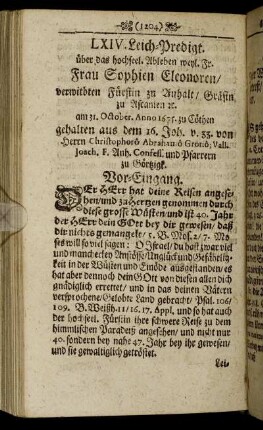 (1204)
LXIV. Leich-Predigt.
über das hochseel. Ableben weyl. Fr.
Frau Sophien Eleonoren/
verwibten Fürstin zu Anhalt/ Gräfin
zu Ascanien ꝛc.
am 31. October. Anno 1675. zu Cöthen
gehalten aus dem 16. Joh. v. 33. von
Herrn Christophorô Abrahamô Gronô; Vall.
Joach. F. Anh. Confess. und Pfarrern
zu Görtzigk.
Vor-Eingang.
DEr HErr hat deine Reisen angese-
hen/ und zu Hertzen genommen durch
diese grosse Wüsten/ und ist 40. Jahr
der HErr dein GOtt bey dir gewesen/ daß
dir nichts gemangelt/ 5. B. Mos. 2/ 7. Mo-
ses will so viel sagen: O Israel/ du hast zwar viel
und mancherley Anstöße/ Unglück und Gefährlig-
keit in der Wüsten und Einöde ausgestanden/ es
hat aber dennoch dein GOtt von diesen allen dich
gnädiglich errettet/ und in das deinen Vätern
versprochene/ Gelobte Land gebracht/ Psal. 106/
109. B. Weißh. 11/ 16. 17. Appl. und so hat auch
der hochseel. Fürstin ihre schwere Reise zu dem
himmlischen Paradeiß angesehen/ und nicht nur
40. sondern bey nahe 47. Jahr bey ihr gewesen/
und sie gewaltiglich getröstet.
Lei-